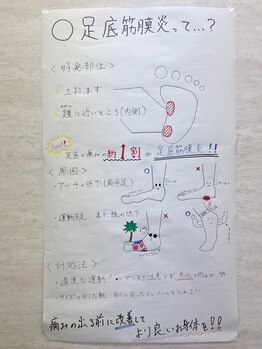 ○足底筋膜炎って…?
<好発部位>
・土踏まず
・踵に近いところ(内側)
Point!!
足底の痛みの約1割が足底筋膜炎!!
<原因>
・アーチの低下(扁平足)
・運動不足 柔軟性の低下
<対処法>
・適度な運動!
痛みの出る前に改善して
より良いお身体を!!